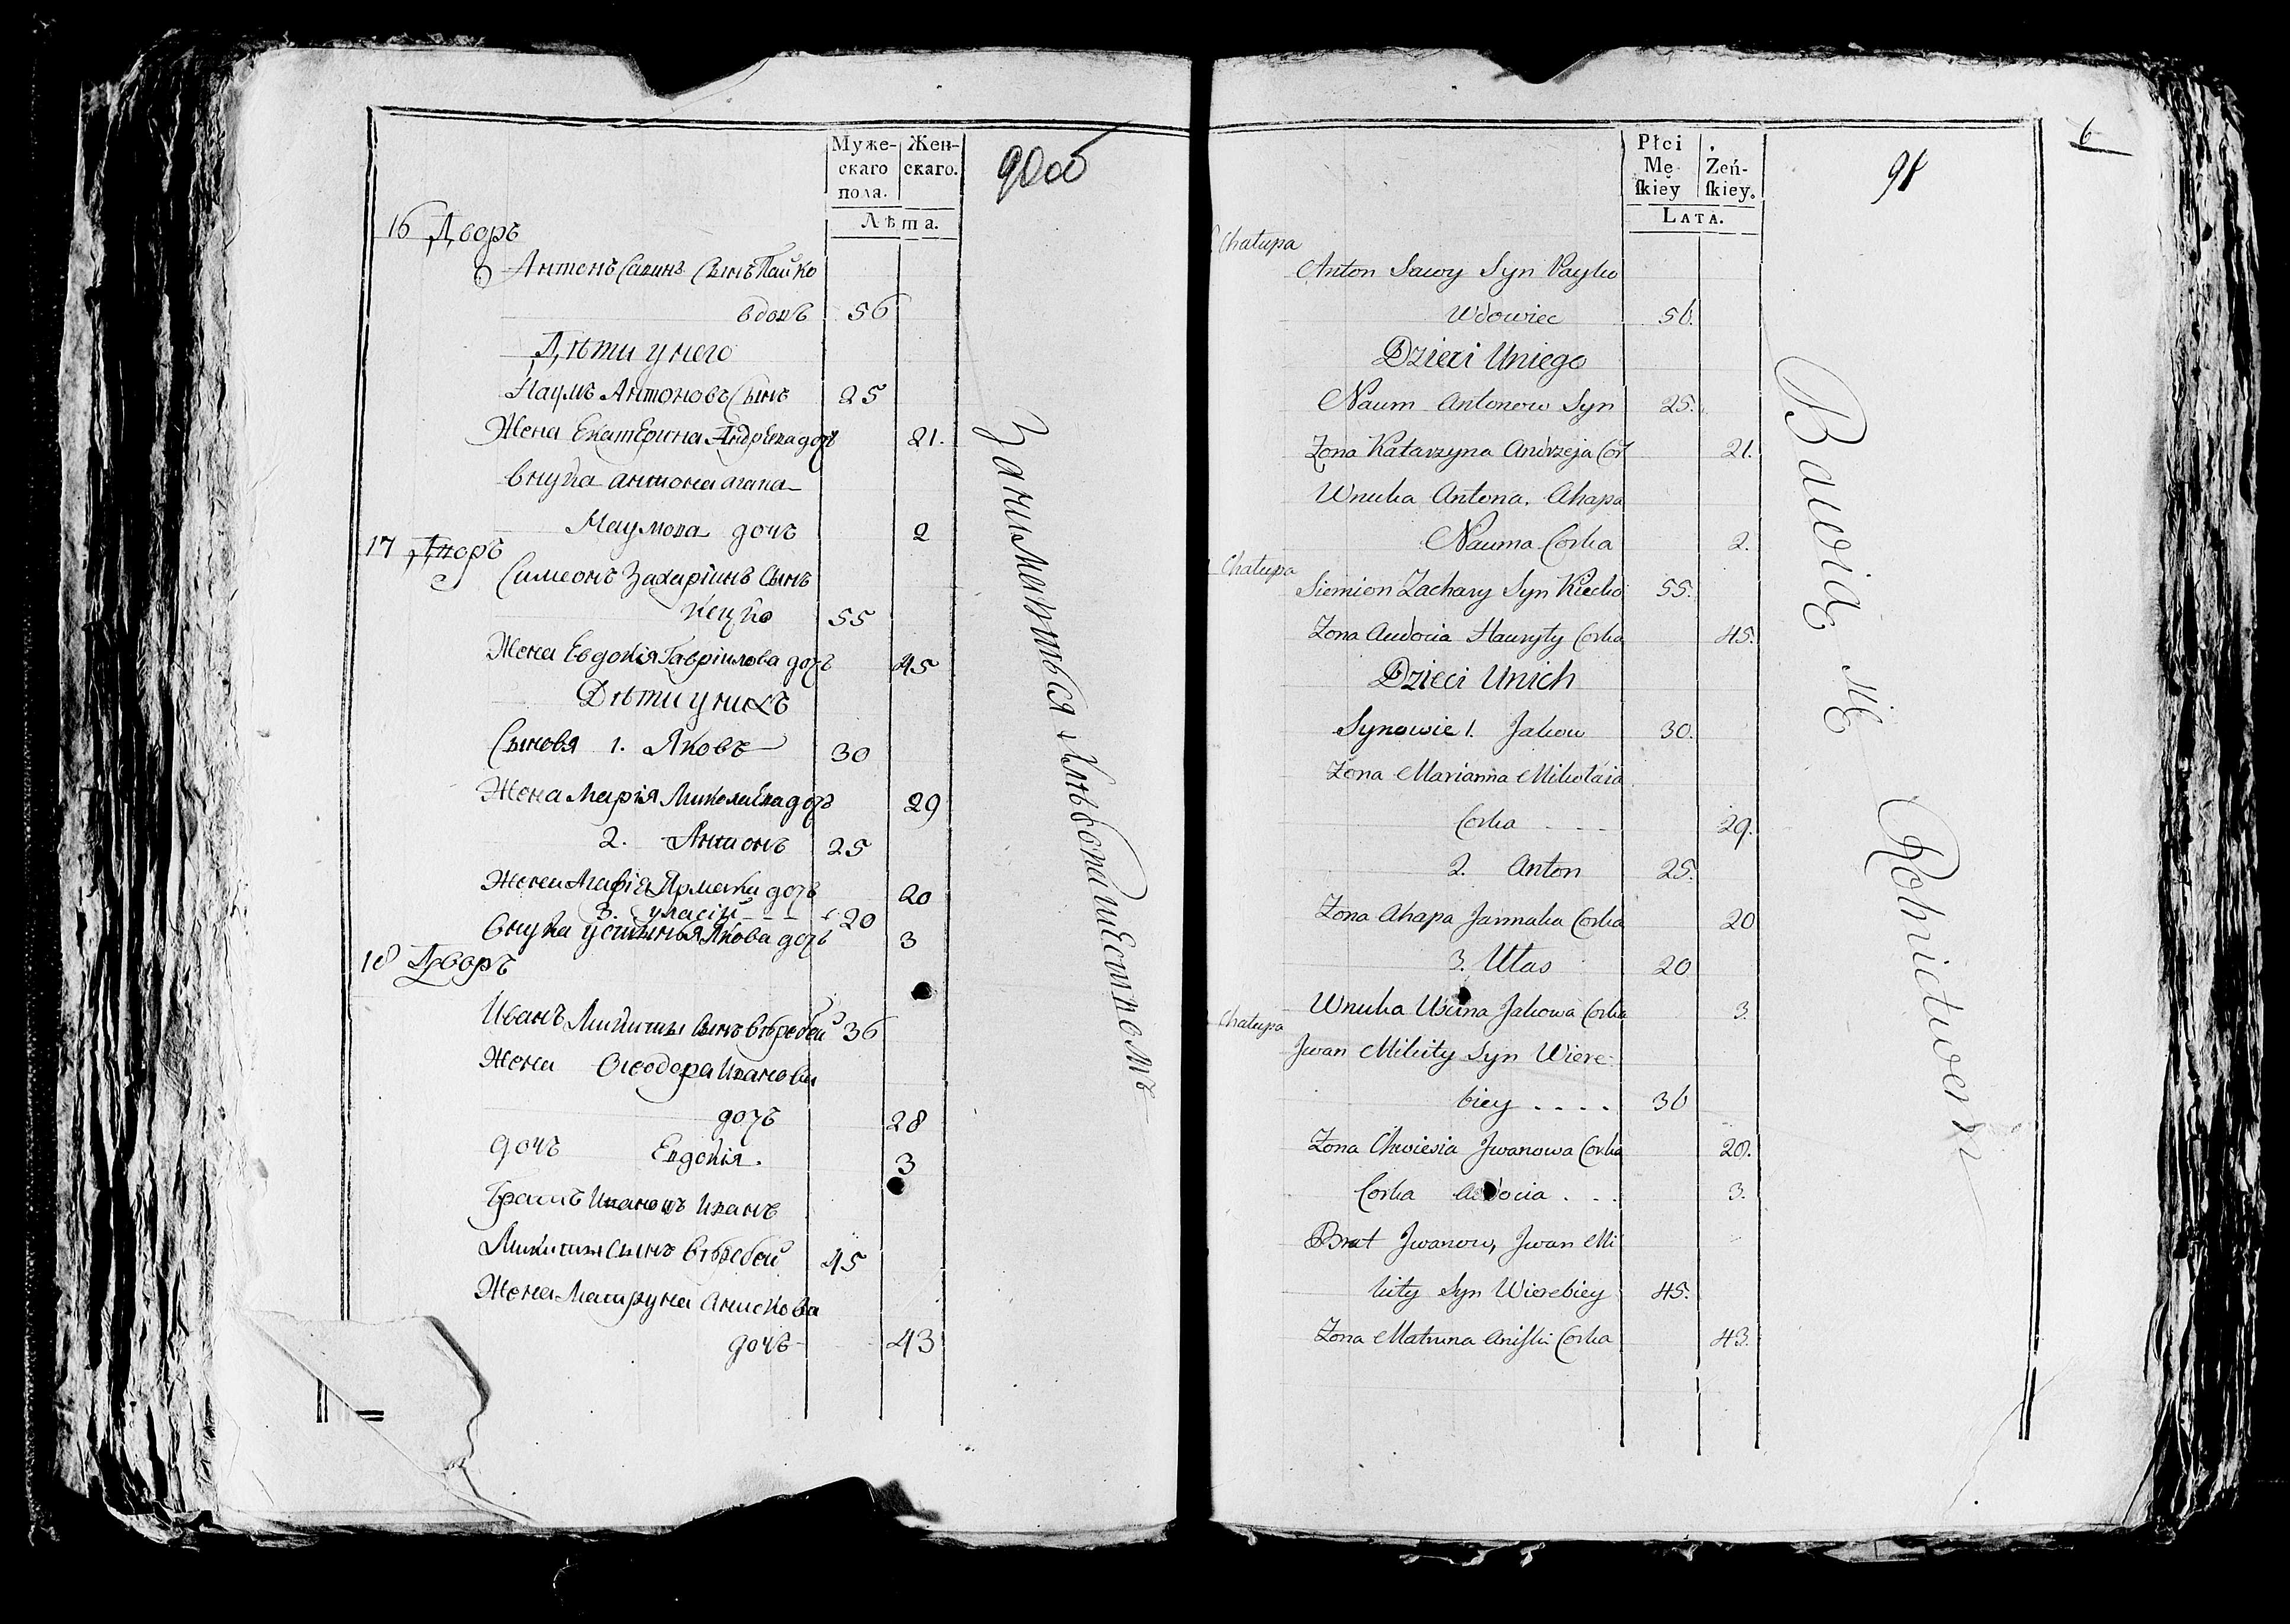 Муже-
скаго
пола.
Жен-
скаго.
Лѣта.
90об
16 Дворъ
Антонъ Савинъ Сынъ Пайко
вдовъ 56
Дѣти у него
Наумъ Антоновъ Сынъ 25
Жена Екатерина Андрѣева дочъ 21.
внука антона агапа
Наумова дочъ 2
17 Дворъ
Симеонъ Захаріинъ Сынъ
Кецко 55
Жена Евдокія Гавріилова дочъ 45
Дѣти у нихъ
Сыновя 1. Яковъ 30
Жена Марія Миколаева дочъ 29
2. Антонъ 25
Жена Агафія Ярмака дочъ 20
3. уласій 20
Внука устинья Якова дочъ 3
18 Дворъ
Иванъ Микиты Сынъ Вѣребей 36
Жена Ѳеодора Иванова
дочъ 28
дочъ Евдокія. 3
Братъ Ивановъ Иванъ
Микиты Сынъ Вѣребей 45
Жена Матруна Аниськова
дочъ 43
Занимаются Хлѣбопашествомъ
Płci
Mę
ſkiey
Żeń-
ſkiey.
LATA.
91
6
Chałupa
Anton Sawy Syn Payko
Wdowiec 56.
Dzieci Uniego
Naum Antonow Syn 25.
Zona Katarzyna Andrzeja Cor 21.
Wnuka Antona. Ahapa
Nauma Corka 2.
Chałupa
Siemion Zachary Syn Kiecko 55.
Zona Audocia Hauryły Corka 45.
Dzieci Unich
Synowie 1. Jakow 30.
Zona Marianna Mikołaia
Corka 29.
2. Anton 25.
Zona Ahapa Jarmaka Corka 20
3. Ułas 20
Wnuka Uscina Jakowa Corka 3.
Chałupa
Jwan Mikity Syn Wiere-
biey .... 36
Zona Chwiesia Jwanowa Corka 28.
Corka Audocia ... 3.
Brat Jwanow, Jwan Mi
kity Syn Wierebiey 45.
Zona Matruna Aniſki Corka 43.
Bawią się Rolnictwem